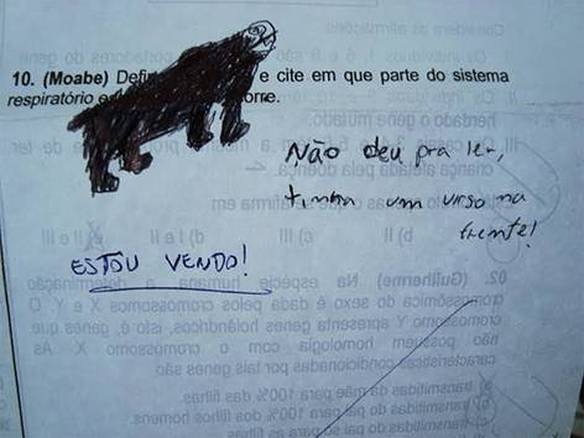 10. (Moabe) Defin e cite em que parte do sistema
respiratório e orre.
Não deu pra ler,
tinha um urso na
frente!
ESTOU VENDO!
Considere as afirmações
Os indivíduos 1, 6 e 9 são portadores do gene
herdado o gene mutado.
criança afetada pela doença.
b) II c) III d) I e II e) II e III
02. (Guilherme) Na espécie humana a determinação
cromossômica do sexo é dada pelos cromossomos X e Y. O
cromossomo Y apresenta genes holândricos, isto é, genes que
não possuem homologia com o cromossomo X. As
características condicionadas por tais genes são
a) transmitidas da mãe para 100% das filhas.
b) transmitidas do pai para 100% dos filhos homens.
c) transmitidas do pai só para as filhas